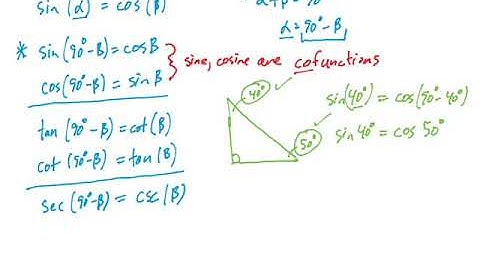 sin(α) = cos(β)
α = 90° - β
* sin(90°-β) = cosβ
cos(90°-β) = sinβ
sine, cosine are cofunctions
tan(90°-β) = cot(β)
cot(90°-β) = tan(β)
sec(90°-β) = csc(β)
40°
50°
sin(40°) = cos(90°-40°)
sin40° = cos 50°